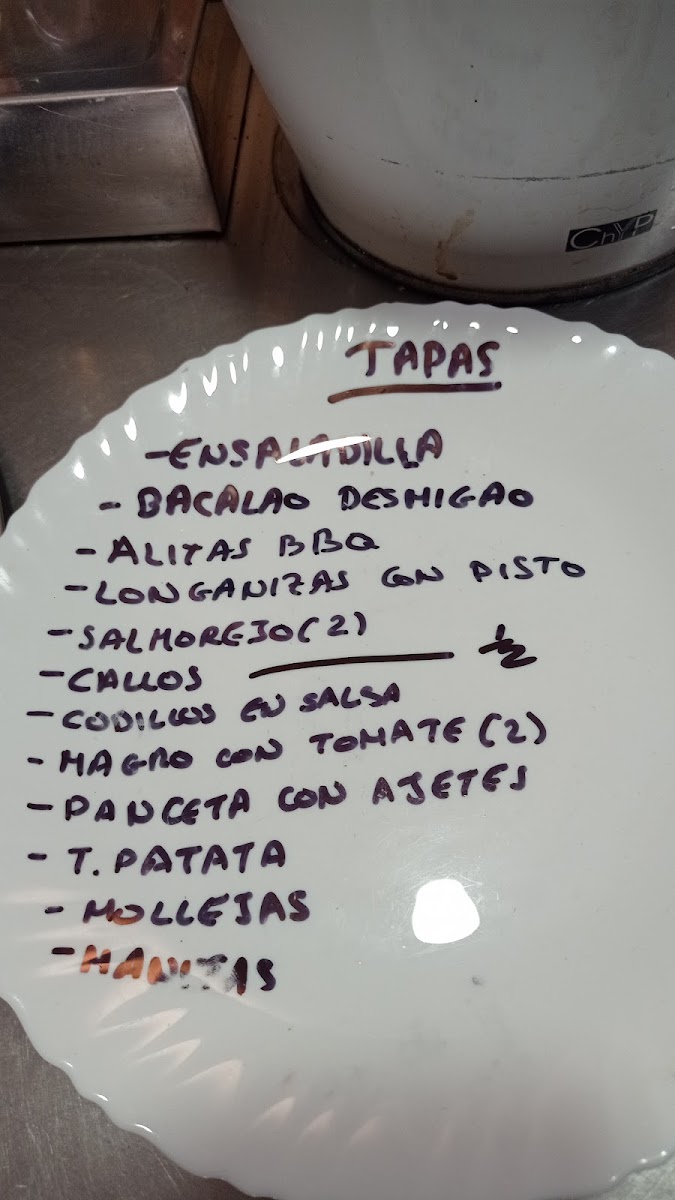 ChYP
TAPAS
- ENSALADILLA
- BACALAO DESMIGAO
- ALITAS BBQ
- LONGANIZAS CON PISTO
- SALMOREJO (2)
- CALLOS ———— 1/2
- CODILLOS EN SALSA
- MAGRO CON TOMATE (2)
- PANCETA CON AJETES
- T. PATATA
- MOLLEJAS
- MANITAS